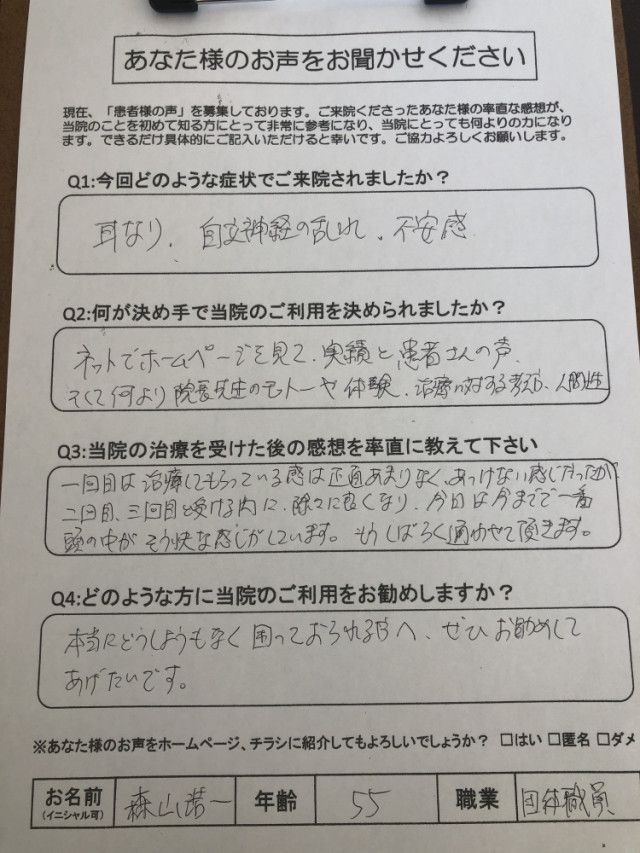 あなた様のお声をお聞かせください
現在、「患者様の声」を募集しております。ご来院くださったあなた様の率直な感想が、
当院のことを初めて知る方にとって非常に参考になり、当院にとっても何よりの力になり
ます。できるだけ具体的にご記入いただけると幸いです。ご協力よろしくお願いします。
Q1:今回どのような症状でご来院されましたか？
耳なり、自立神経の乱れ、不安感
Q2:何が決め手で当院のご利用を決められましたか？
ネットでホームページを見て、実績と患者さんの声、
そして何より院長先生のモットーや体験、治療に対する考え方、人間性
Q3:当院の治療を受けた後の感想を率直に教えて下さい
一回目は治療してもらっている感は正直あまりなく、あっけない感じだったが
二回目、三回目と受ける内に、除々に良くなり、今日は今までで一番
頭の中がそう快な感じがしています。もうしばらく通わせて頂きます。
Q4:どのような方に当院のご利用をお勧めしますか？
本当にどうしようもなく困っておられる方へ、ぜひお勧めして
あげたいです。
※あなた様のお声をホームページ、チラシに紹介してもよろしいでしょうか？ □はい □匿名 □ダメ
お名前 森山 一 年齢 55 職業 団体職員
(イニシャル可)